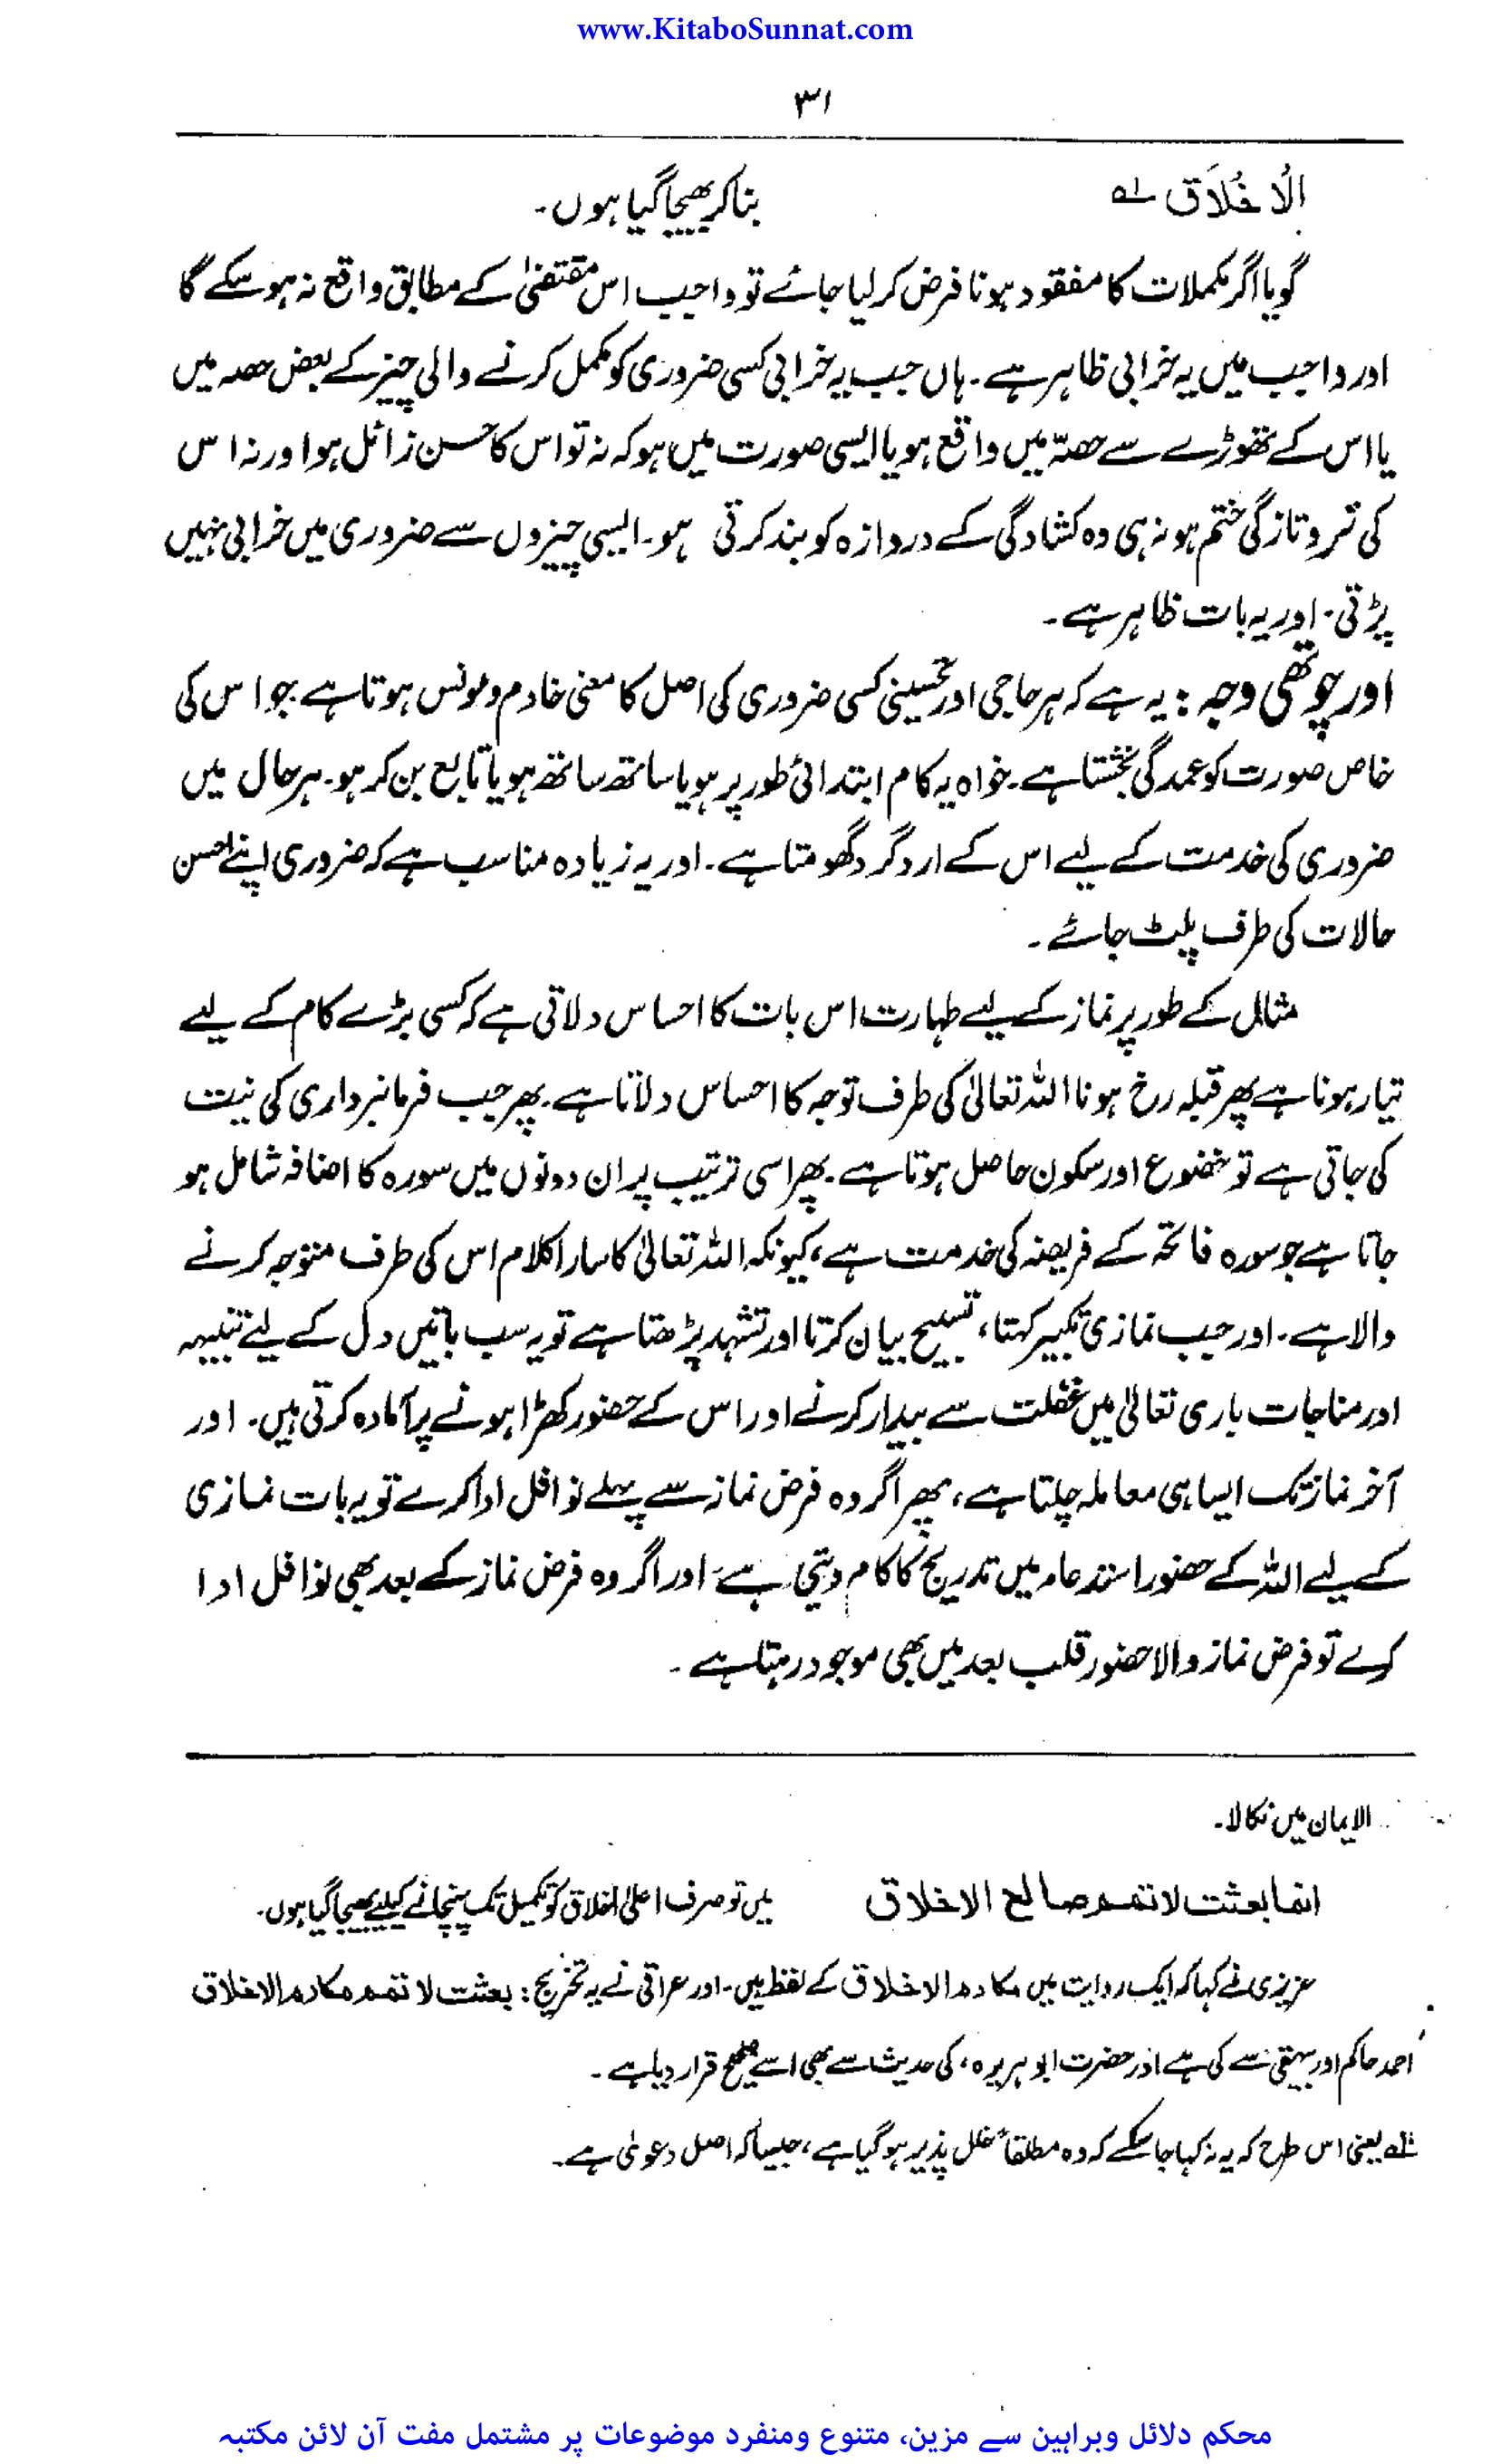 www.KitaboSunnat.com
۳۱
الْاَخْلَاقِ لہ بنا کر بھیجا گیا ہوں۔
گویا اگر مکملات کا مفقود ہونا فرض کر لیا جائے تو واجب اس مقتضیٰ کے مطابق واقع نہ ہو سکے گا
اور واجب میں یہ خرابی ظاہر ہے۔ ہاں جب یہ خرابی کسی ضروری کو مکمل کرنے والی چیز کے بعض حصہ میں
یا اس کے تھوڑے سے حصہّ میں واقع ہو یا ایسی صورت میں ہو کہ نہ تو اس کا حسن زائل ہوا ور نہ اس
کی تروتازگی ختم ہو نہ ہی وہ کشادگی کے دروازہ کو بند کرتی ہو۔ ایسی چیزوں سے ضروری میں خرابی نہیں
پڑتی۔ اور یہ بات ظاہر ہے۔
اور چوتھی وجہ : یہ ہے کہ ہر حاجی اور تحسینی کسی ضروری کی اصل کا معنی خادم و مونس ہوتا ہے جو اس کی
خاص صورت کو عمدگی بخشتا ہے۔ خواہ یہ کام ابتدائی طور پر ہو یا ساتھ ساتھ ہو یا تابع بن کر ہو۔ ہر حال میں
ضروری کی خدمت کے لیے اس کے ارد گرد گھومتا ہے۔ اور یہ زیادہ مناسب ہے کہ ضروری اپنے احسن
حالات کی طرف پلٹ جائے۔
مثال کے طور پر نماز کے لیے طہارت اس بات کا احساس دلاتی ہے کہ کسی بڑے کام کے لیے
تیار ہونا ہے پھر قبلہ رخ ہونا اللہ تعالیٰ کی طرف توجہ کا احساس دلاتا ہے۔ پھر جب فرمانبرداری کی نیت
کی جاتی ہے تو خضوع اور سکون حاصل ہوتا ہے۔ پھر اسی ترتیب پر ان دونوں میں سورہ کا اضافہ شامل ہو
جاتا ہے جو سورہ فاتحہ کے فریضہ کی خدمت ہے، کیونکہ اللہ تعالیٰ کا سارا کلام اس کی طرف متوجہ کرنے
والا ہے۔ اور جب نمازی تکبیر کہتا، تسبیح بیان کرتا اور تشہد پڑھتا ہے تو یہ سب باتیں دل کے لیے تنبیہہ
اور مناجات باری تعالیٰ میں غفلت سے بیدار کرنے اور اس کے حضور کھڑا ہونے پر آمادہ کرتی ہیں۔ اور
آخر نماز تک ایسا ہی معاملہ چلتا ہے، پھر اگر وہ فرض نماز سے پہلے نوافل ادا کرے تو یہ بات نمازی
کے لیے اللہ کے حضور استدعاء میں تدریج کا کام دیتی ہے اور اگر وہ فرض نماز کے بعد بھی نوافل ادا
کرے تو فرض نماز والا حضور قلب بعد میں بھی موجود رہتا ہے۔
الایمان میں نکالا۔
انما بعثت لاتمم صالح الاخلاق میں تو صرف اعلیٰ اخلاق کو تکمیل تک پہنچانے کیلیے بھیجا گیا ہوں۔
عزیزی نے کہا کہ ایک روایت میں مکارم الاخلاق کے لفظ ہیں۔ اور عراقی نے یہ تخریج : بعثت لاتمم مکارم الاخلاق
احمد حاکم اور بیہقی سے کی ہے اور حضرت ابو ہریرہ، کی حدیث سے بھی اسے صحیح قرار دیا ہے۔
یعنی اس طرح کہ یہ نہ کہا جا سکے کہ وہ مطلقاً خلل پذیر ہو گیا ہے، جیسا کہ اصل دعویٰ ہے۔
محکم دلائل وبراہین سے مزین، متنوع ومنفرد موضوعات پر مشتمل مفت آن لائن مکتبہ